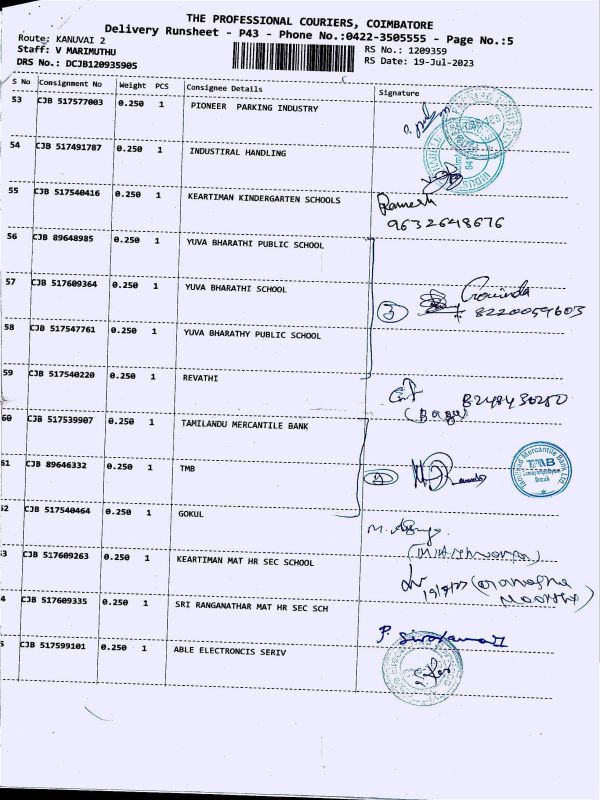 THE PROFESSIONAL COURIERS, COIMBATORE
Delivery Runsheet - P43 - Phone No.:0422-3505555 - Page No.:5
Route: KANUVAI 2
RS No.: 1209359
Staff: V MARIMUTHU
RS Date: 19-Jul-2023
DRS No.: DCJB120935905
S No Consignment No Weight PCS Consignee Details Signature
53 CJB 517577003 0.250 1 PIONEER PARKING INDUSTRY
54 CJB 517491787 0.250 1 INDUSTIRAL HANDLING
55 CJB 517540416 0.250 1 KEARTIMAN KINDERGARTEN SCHOOLS
Ramesh
9632648676
56 CJB 89648985 0.250 1 YUVA BHARATHI PUBLIC SCHOOL
57 CJB 517609364 0.250 1 YUVA BHARATHI SCHOOL
3 Govinda
8220059603
58 CJB 517547761 0.250 1 YUVA BHARATHY PUBLIC SCHOOL
59 CJB 517540220 0.250 1 REVATHI
8248430280
60 CJB 517539907 0.250 1 TAMILANDU MERCANTILE BANK
61 CJB 89646332 0.250 1 TMB
2
Tamilnad Mercantile Bank Ltd.
TMB
Branch
62 CJB 517540464 0.250 1 GOKUL
3 CJB 517609263 0.250 1 KEARTIMAN MAT HR SEC SCHOOL
19/7/23
4 CJB 517609335 0.250 1 SRI RANGANATHAR MAT HR SEC SCH
5 CJB 517599101 0.250 1 ABLE ELECTRONCIS SERIV